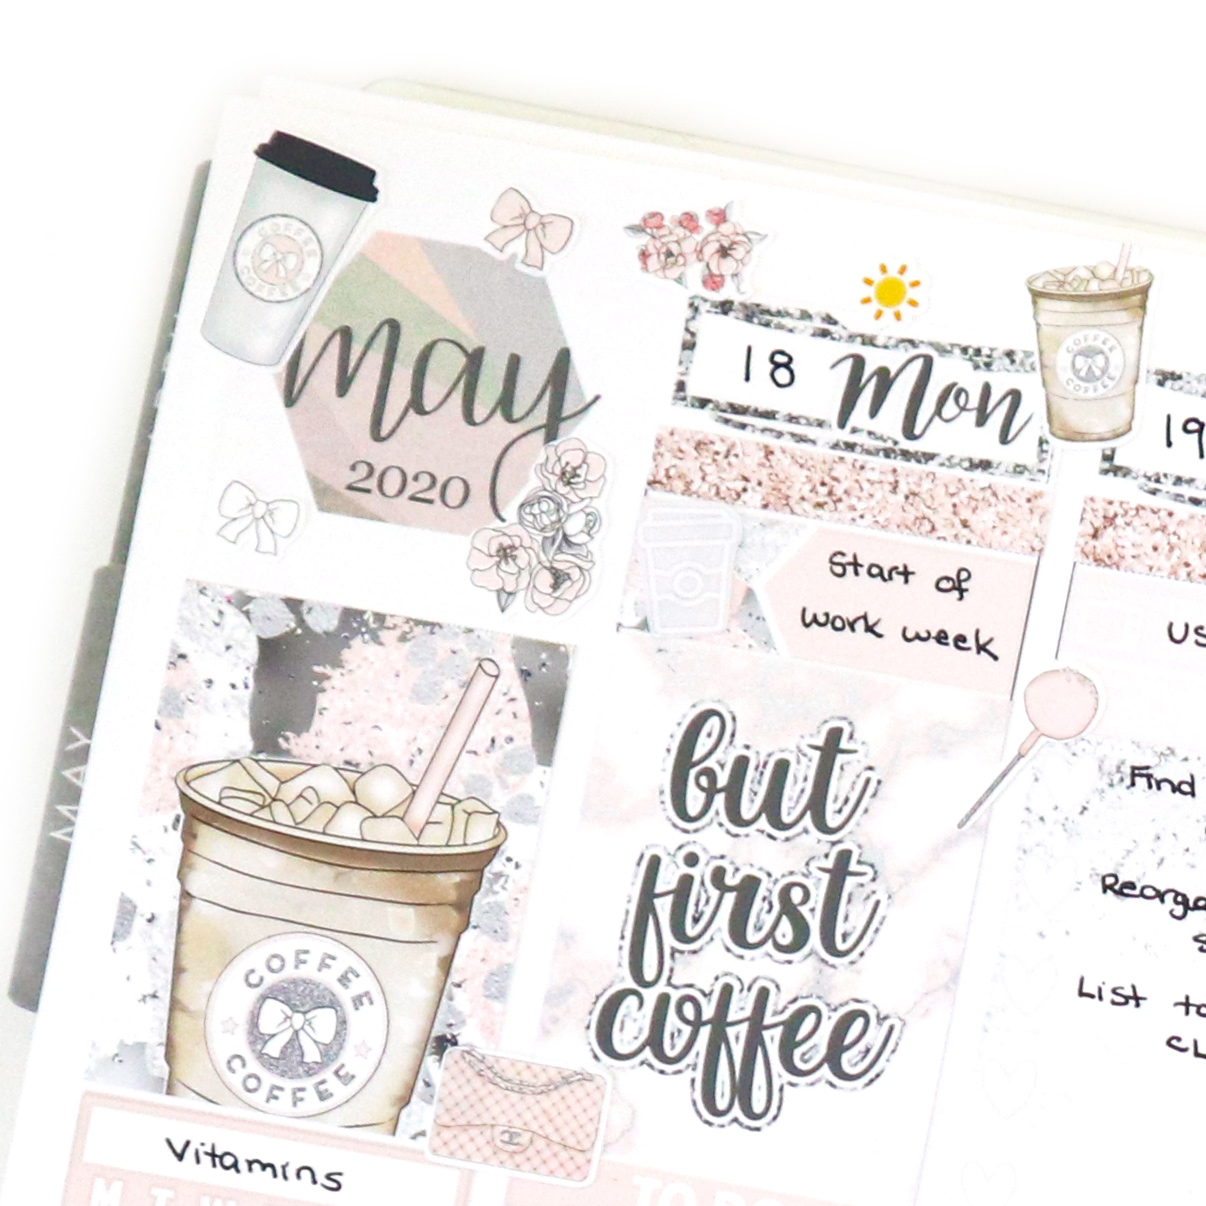 COFFEE
COFFEE
May
2020
18 Mon
COFFEE
COFFEE
19
Start of
work week
MAY
but
first
coffee
Find
List to
COFFEE
COFFEE
Vitamins
M T W
TO DO